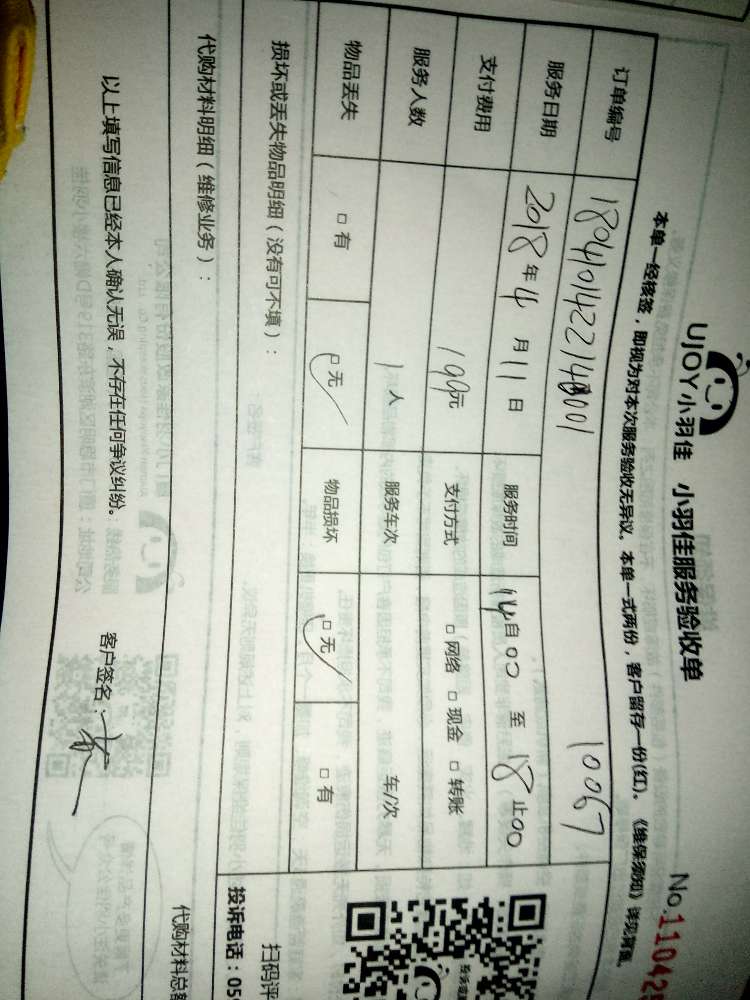 UJOY 小羽佳 小羽佳服务验收单
No.11042
本单一经核签，即视为对本次服务验收无异议。本单一式两份，客户留存一份(红)。《维保须知》详见背面
订单编号 10067
服务日期 2018年4月11日 服务时间 14自00至18止00
支付费用 199元 支付方式 □网络 □现金 □转账
服务人数 1人 服务车次 车/次
物品丢失 □有 □无 物品损坏 □无 □有
损坏或丢失物品明细（没有可不填）：
扫码评
投诉电话：05
代购材料明细（维修业务）：
代购材料总
以上填写信息已经本人确认无误，不存在任何争议纠纷。
客户签名：